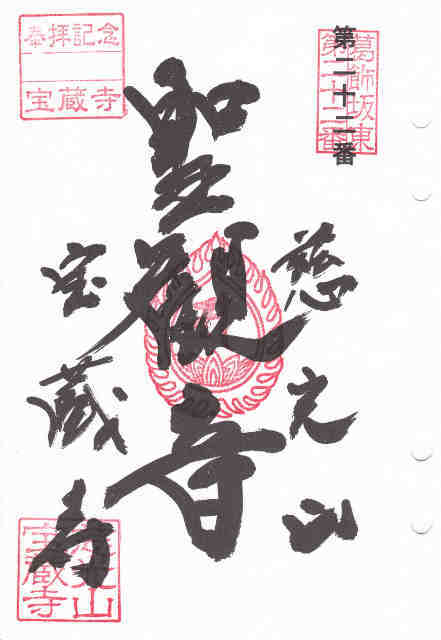 第二十二番
葛飾坂東
第二十二番
慈光山
聖観音
宝蔵寺
奉拝記念
宝蔵寺
慈光山
宝蔵寺